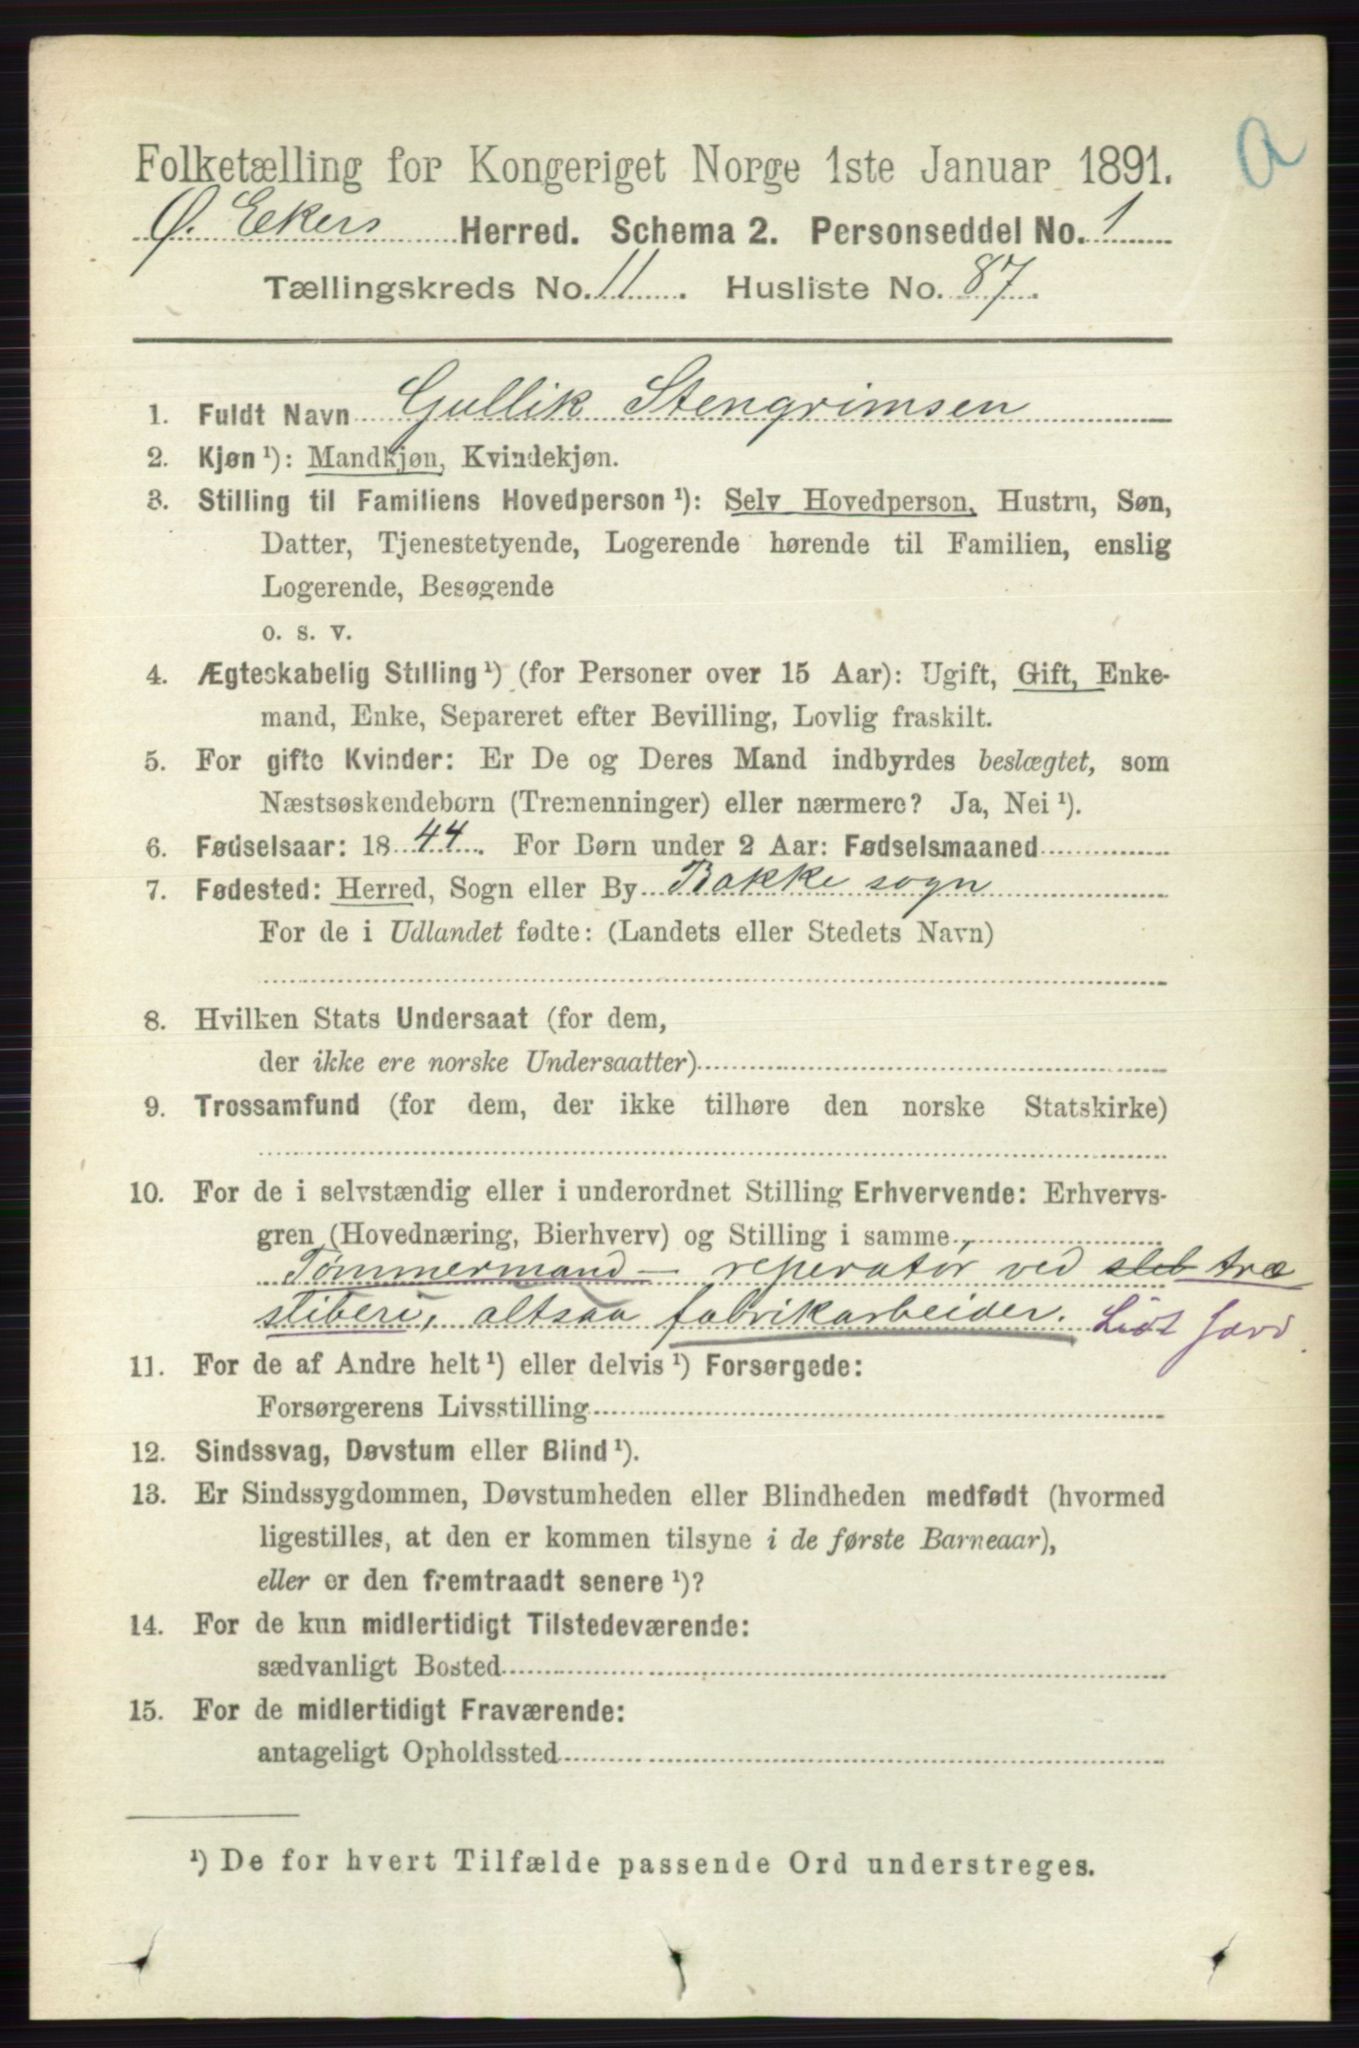 a
Folketælling for Kongeriget Norge 1ste Januar 1891.
Ø. Ekers Herred. Schema 2. Personseddel No. 1
Tællingskreds No. 11. Husliste No. 87.
1. Fuldt Navn Gullik Stengrimsen
2. Kjøn ¹): Mandkjøn, Kvindekjøn.
3. Stilling til Familiens Hovedperson ¹): Selv Hovedperson, Hustru, Søn,
Datter, Tjenestetyende, Logerende hørende til Familien, enslig
Logerende, Besøgende
o. s. v.
4. Ægteskabelig Stilling ¹) (for Personer over 15 Aar): Ugift, Gift, Enke-
mand, Enke, Separeret efter Bevilling, Lovlig fraskilt.
5. For gifte Kvinder: Er De og Deres Mand indbyrdes beslægtet, som
Næstsøskendebørn (Tremenninger) eller nærmere? Ja, Nei ¹).
6. Fødselsaar: 1844. For Børn under 2 Aar: Fødselsmaaned
7. Fødested: Herred, Sogn eller By Bakke sogn
For de i Udlandet fødte: (Landets eller Stedets Navn)
8. Hvilken Stats Undersaat (for dem,
der ikke ere norske Undersaatter)
9. Trossamfund (for dem, der ikke tilhøre den norske Statskirke)
10. For de i selvstændig eller i underordnet Stilling Erhvervende: Erhvervs-
gren (Hovednæring, Bierhverv) og Stilling i samme
Tømmermand - reperatør ved sleb træ
sliberi, altsaa fabrikarbeider. Lidt Jord
11. For de af Andre helt ¹) eller delvis ¹) Forsørgede:
Forsørgerens Livsstilling
12. Sindssvag, Døvstum eller Blind ¹).
13. Er Sindssygdommen, Døvstumheden eller Blindheden medfødt (hvormed
ligestilles, at den er kommen tilsyne i de første Barneaar),
eller er den fremtraadt senere ¹)?
14. For de kun midlertidigt Tilstedeværende:
sædvanligt Bosted
15. For de midlertidigt Fraværende:
antageligt Opholdssted
¹) De for hvert Tilfælde passende Ord understreges.